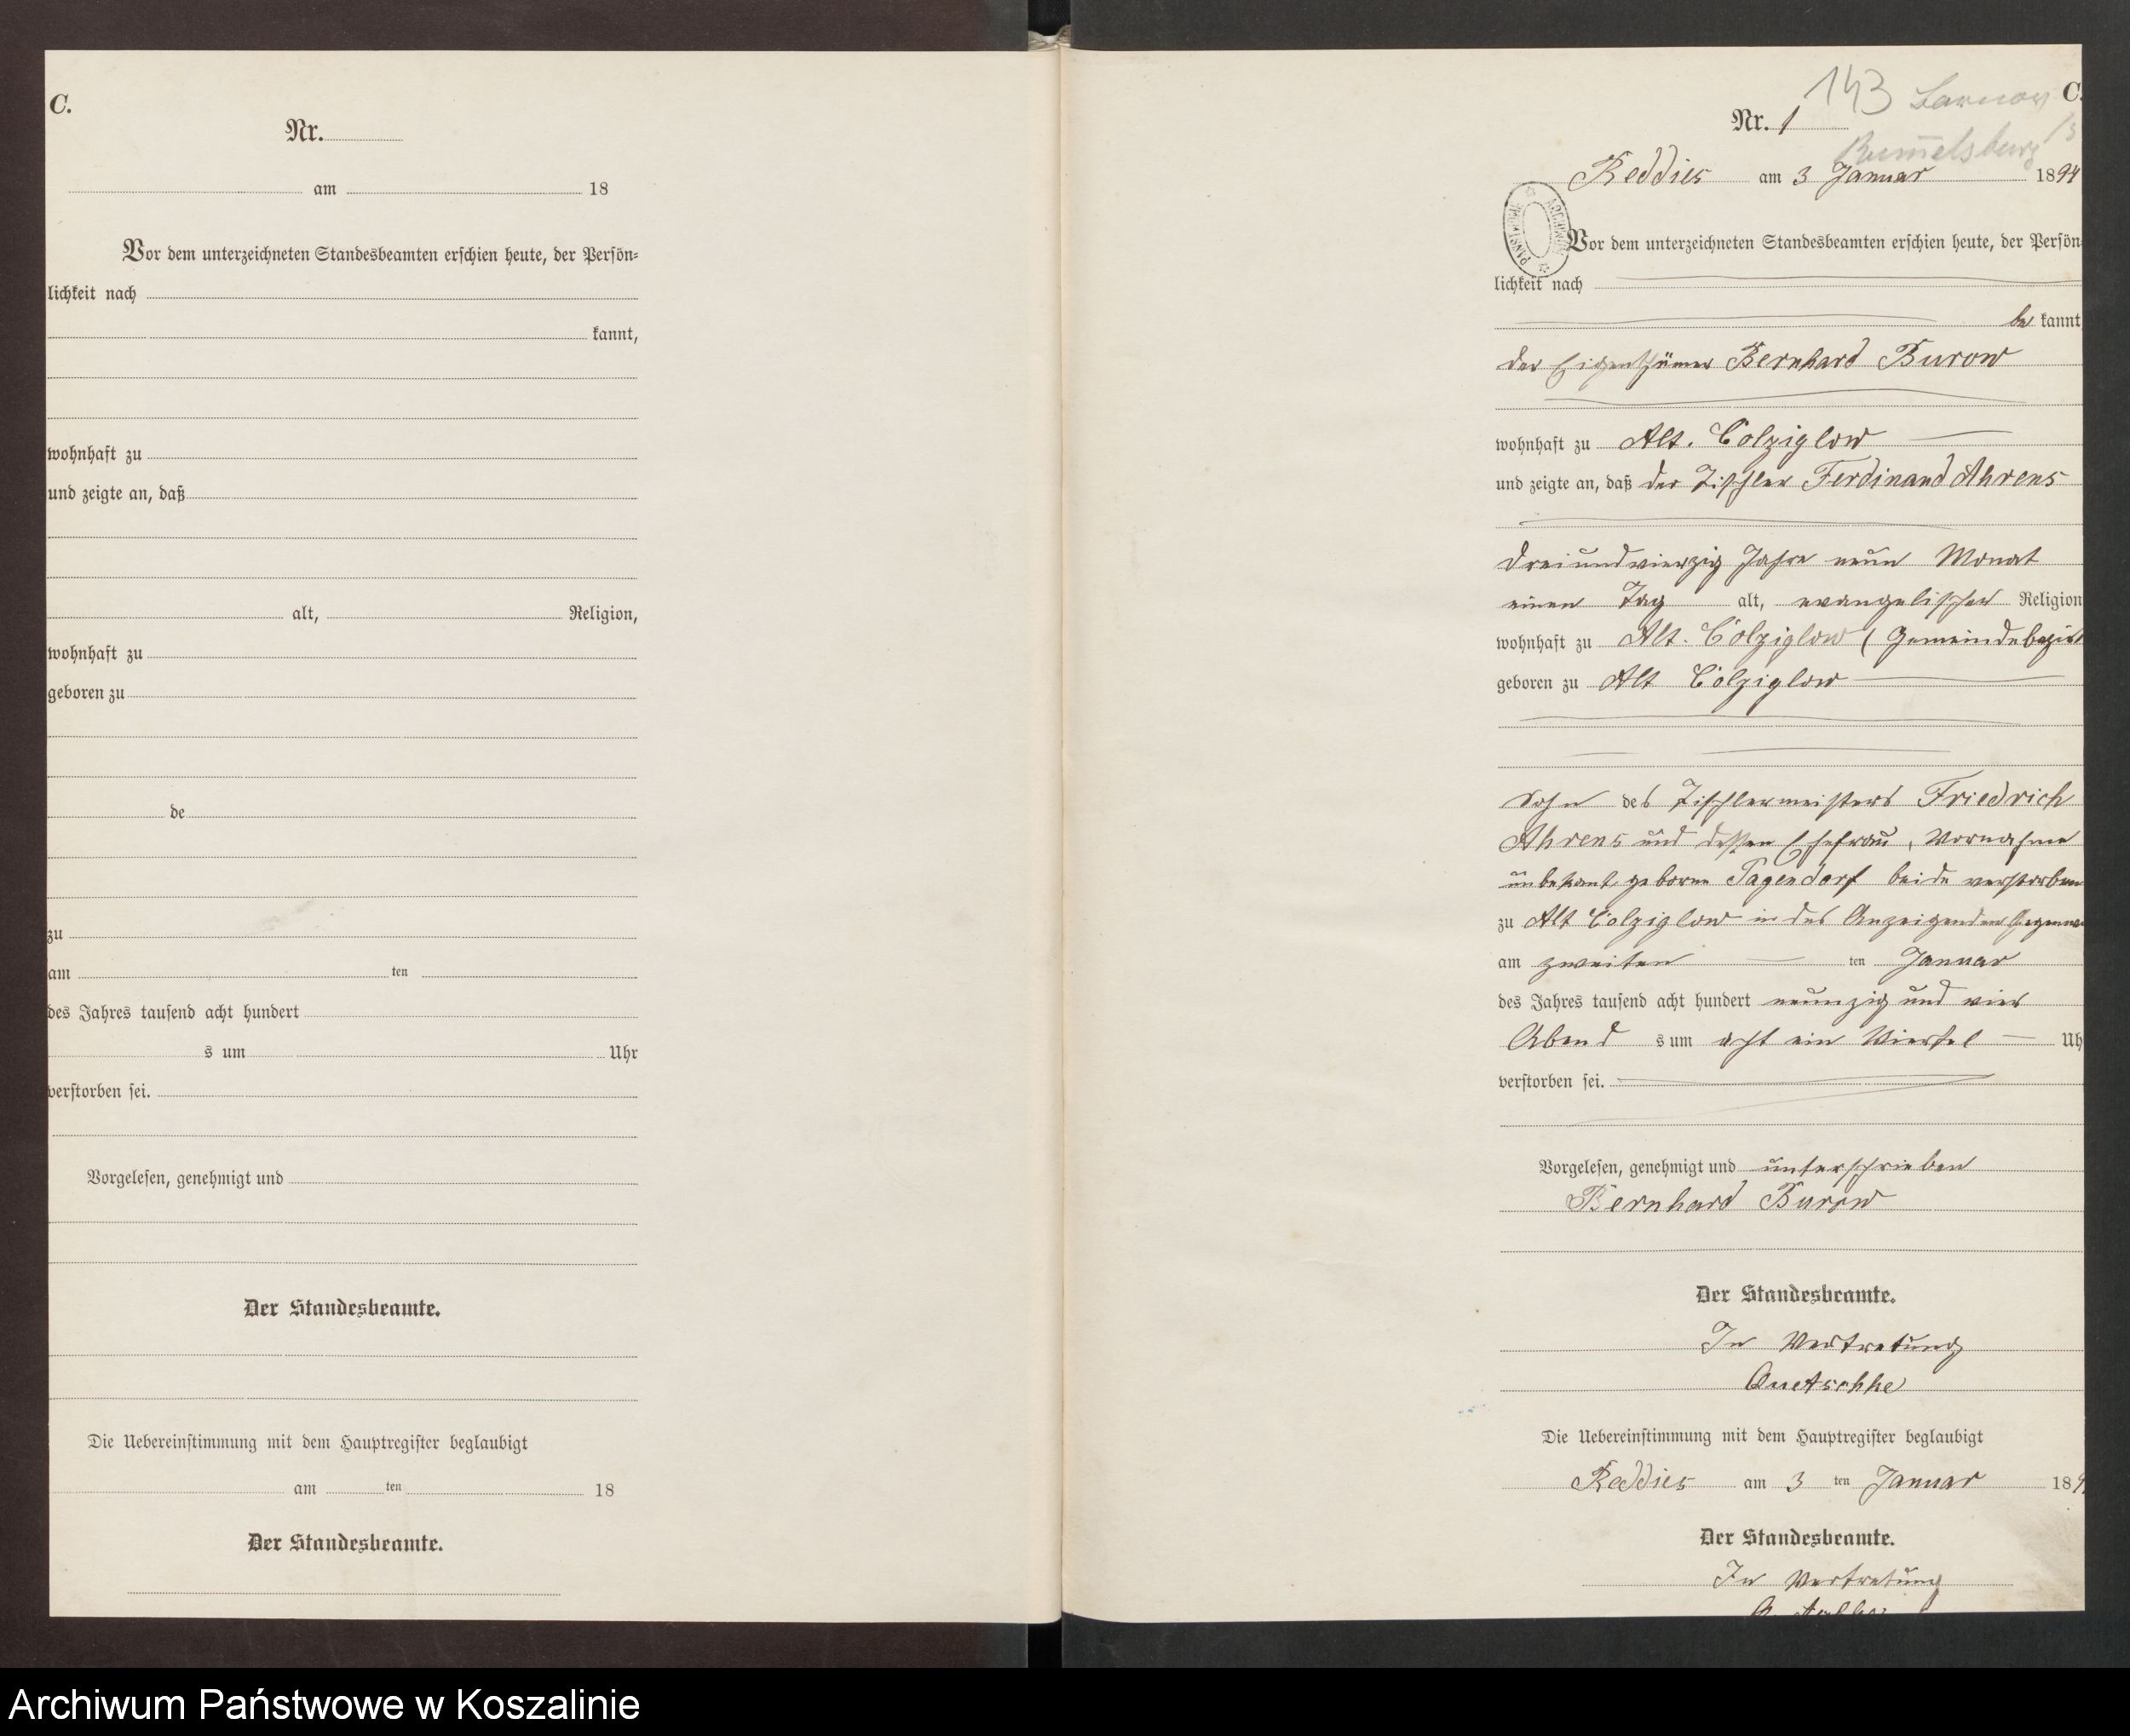 C.
Nr.
am 18
Vor dem unterzeichneten Standesbeamten erschien heute, der Persön-
lichkeit nach
kannt,
wohnhaft zu
und zeigte an, daß
alt, Religion,
wohnhaft zu
geboren zu
de
zu
am ten
des Jahres tausend acht hundert
s um Uhr
verstorben sei.
Vorgelesen, genehmigt und
Der Standesbeamte.
Die Uebereinstimmung mit dem Hauptregister beglaubigt
am ten 18
Der Standesbeamte.
143 C.
Nr. 1
Rummelsburg
Reddies am 3 Januar 1894
PAŃSTWOWE ARCHIWUM
Vor dem unterzeichneten Standesbeamten erschien heute, der Persön
lichkeit nach
be kannt
der Eigenthümer Bernhard Burow
wohnhaft zu Alt. Colziglow
und zeigte an, daß der Tischler Ferdinand Ahrens
dreiundvierzig Jahre neun Monat
einen Tag alt, evangelischer Religion
wohnhaft zu Alt. Colziglow (Gemeindebezirk
geboren zu Alt Colziglow
Sohn des Tischlermeisters Friedrich
Ahrens und dessen Ehefrau, Vornahme
unbekant geborne Pagendorf beide verstorben
zu Alt Colziglow in des Anzeigenden Gegenwa
am zweiten ten Januar
des Jahres tausend acht hundert neunzig und vier
Abend s um acht ein Viertel Uh
verstorben sei.
Vorgelesen, genehmigt und unterschrieben
Bernhard Burow
Der Standesbeamte.
In Vertretung
Quetschke
Die Uebereinstimmung mit dem Hauptregister beglaubigt
Reddies am 3 ten Januar 189
Der Standesbeamte.
In Vertretung
Archiwum Państwowe w Koszalinie